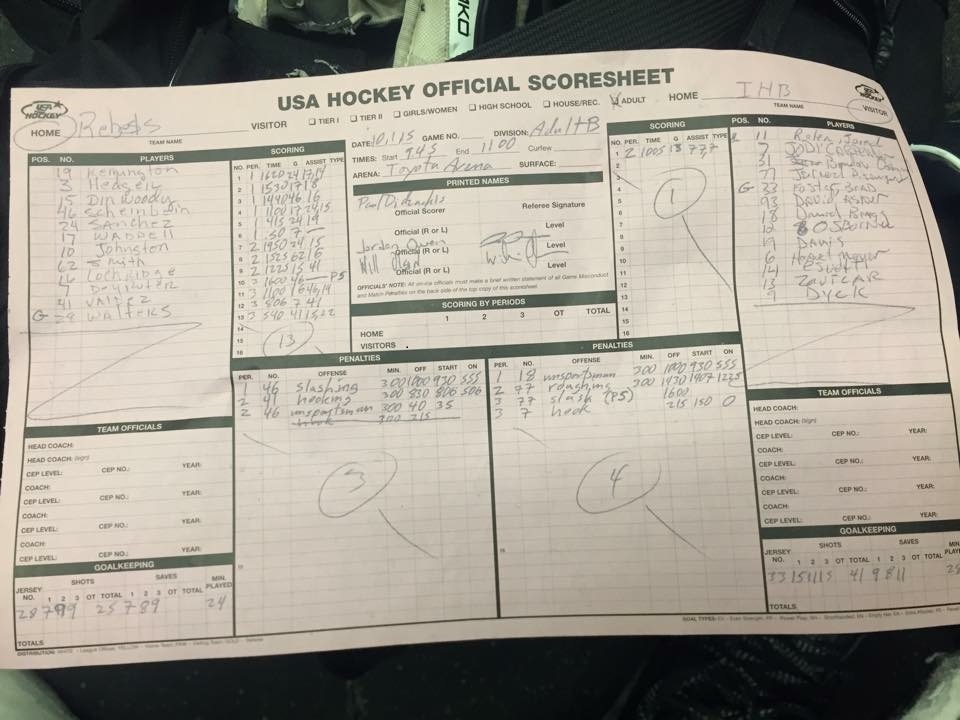 KO
USA HOCKEY OFFICIAL SCORESHEET
USA HOCKEY
HOME Rebels
TEAM NAME
VISITOR
☐ TIER I ☐ TIER II ☐ GIRLS/WOMEN ☐ HIGH SCHOOL ☐ HOUSE/REC. ☑ ADULT
HOME IHB
TEAM NAME
VISITOR
DATE: 10.1.15 GAME NO. DIVISION: Adult B
TIMES: Start 9:45 End 11:00 Curfew
ARENA: Toyota Arena SURFACE:
PRINTED NAMES
Official Scorer Referee Signature
Official (R or L) Level
Jordan Owen
Official (R or L) Level
Will
Official (R or L) Level
OFFICIALS' NOTE: All on-ice officials must make a brief written statement of all Game Misconduct
and Match Penalties on the back side of the top copy of this scoresheet.
SCORING BY PERIODS
1 2 3 OT TOTAL
HOME
VISITORS
POS. NO. PLAYERS
19 Remington
3 Hedgely
15 Dinwoody
46 Scheinbein
24 SANCHEZ
17 WADDELL
10 Johnston
62 Smith
16 Lochridge
7
41
G 28 WALTERS
SCORING
NO. PER. TIME G ASSIST TYPE
1 1 1620 24 17,14
2 1 1530 17 18
3 1 1440 46 16
4 1 1100 17 24,15
5 1 415 24 19
6 1 :50 7 —
7 2 1950 24 15
8 2 1525 62 16
9 2 1225 15 41
10 3 1600 46 — PS
11 3 1100 16 46,19
12 3 806 7 41
13 3 540 41 15,22
14
15
16
13
SCORING
NO. PER. TIME G ASSIST TYPE
1 2 1005 13 77,7
2
3
4
5
6
7
8
9
10
11
12
13
14
15
16
1
POS. NO. PLAYERS
11
7
31
77
G 33 Foster BRAD
93 David
18 Daniel
12 OSBORNE
19 DAVIS
6
14
13
9 DYCK
PENALTIES
PER. NO. OFFENSE MIN. OFF START ON
1 46 slashing 300 1000 930 555
2 41 hooking 300 830 806 506
2 46 unsportsman 300 40 35
300 215
3
PENALTIES
PER. NO. OFFENSE MIN. OFF START ON
1 18 unsportsman 300 1000 930 555
2 77 roughing 300 1930 1907 1225
3 77 slash (PS) 1600
3 7 hook 215 150 0
4
TEAM OFFICIALS
HEAD COACH:
HEAD COACH: (sign)
CEP LEVEL: CEP NO.: YEAR:
COACH:
CEP LEVEL: CEP NO.: YEAR:
COACH:
CEP LEVEL: CEP NO.: YEAR:
COACH:
CEP LEVEL: CEP NO.: YEAR:
GOALKEEPING
JERSEY NO. SHOTS 1 2 3 OT TOTAL SAVES 1 2 3 OT TOTAL MIN. PLAYED
28 7 9 9 25 7 8 9 24
TOTALS
TEAM OFFICIALS
HEAD COACH:
HEAD COACH: (sign)
CEP LEVEL: CEP NO.: YEAR:
COACH:
CEP LEVEL: CEP NO.: YEAR:
COACH:
CEP LEVEL: CEP NO.: YEAR:
COACH:
CEP LEVEL: CEP NO.: YEAR:
GOALKEEPING
JERSEY NO. SHOTS 1 2 3 OT TOTAL SAVES 1 2 3 OT TOTAL MIN. PLAYED
33 15 11 15 41 9 8 11
TOTALS